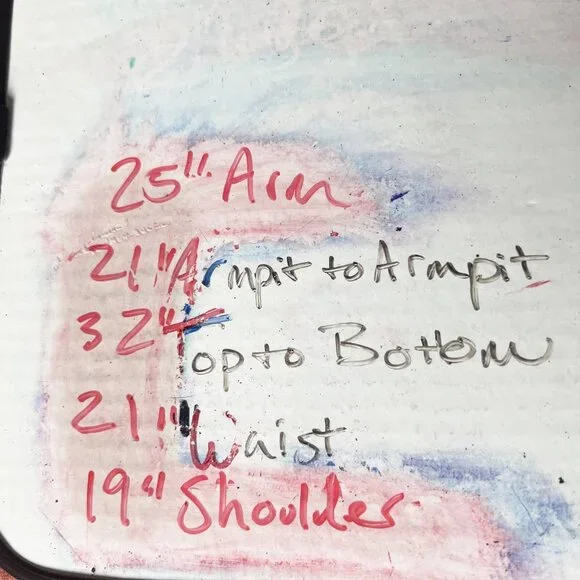 25" Arm
21" Armpit to Armpit
32" Top to Bottom
21" Waist
19" Shoulder